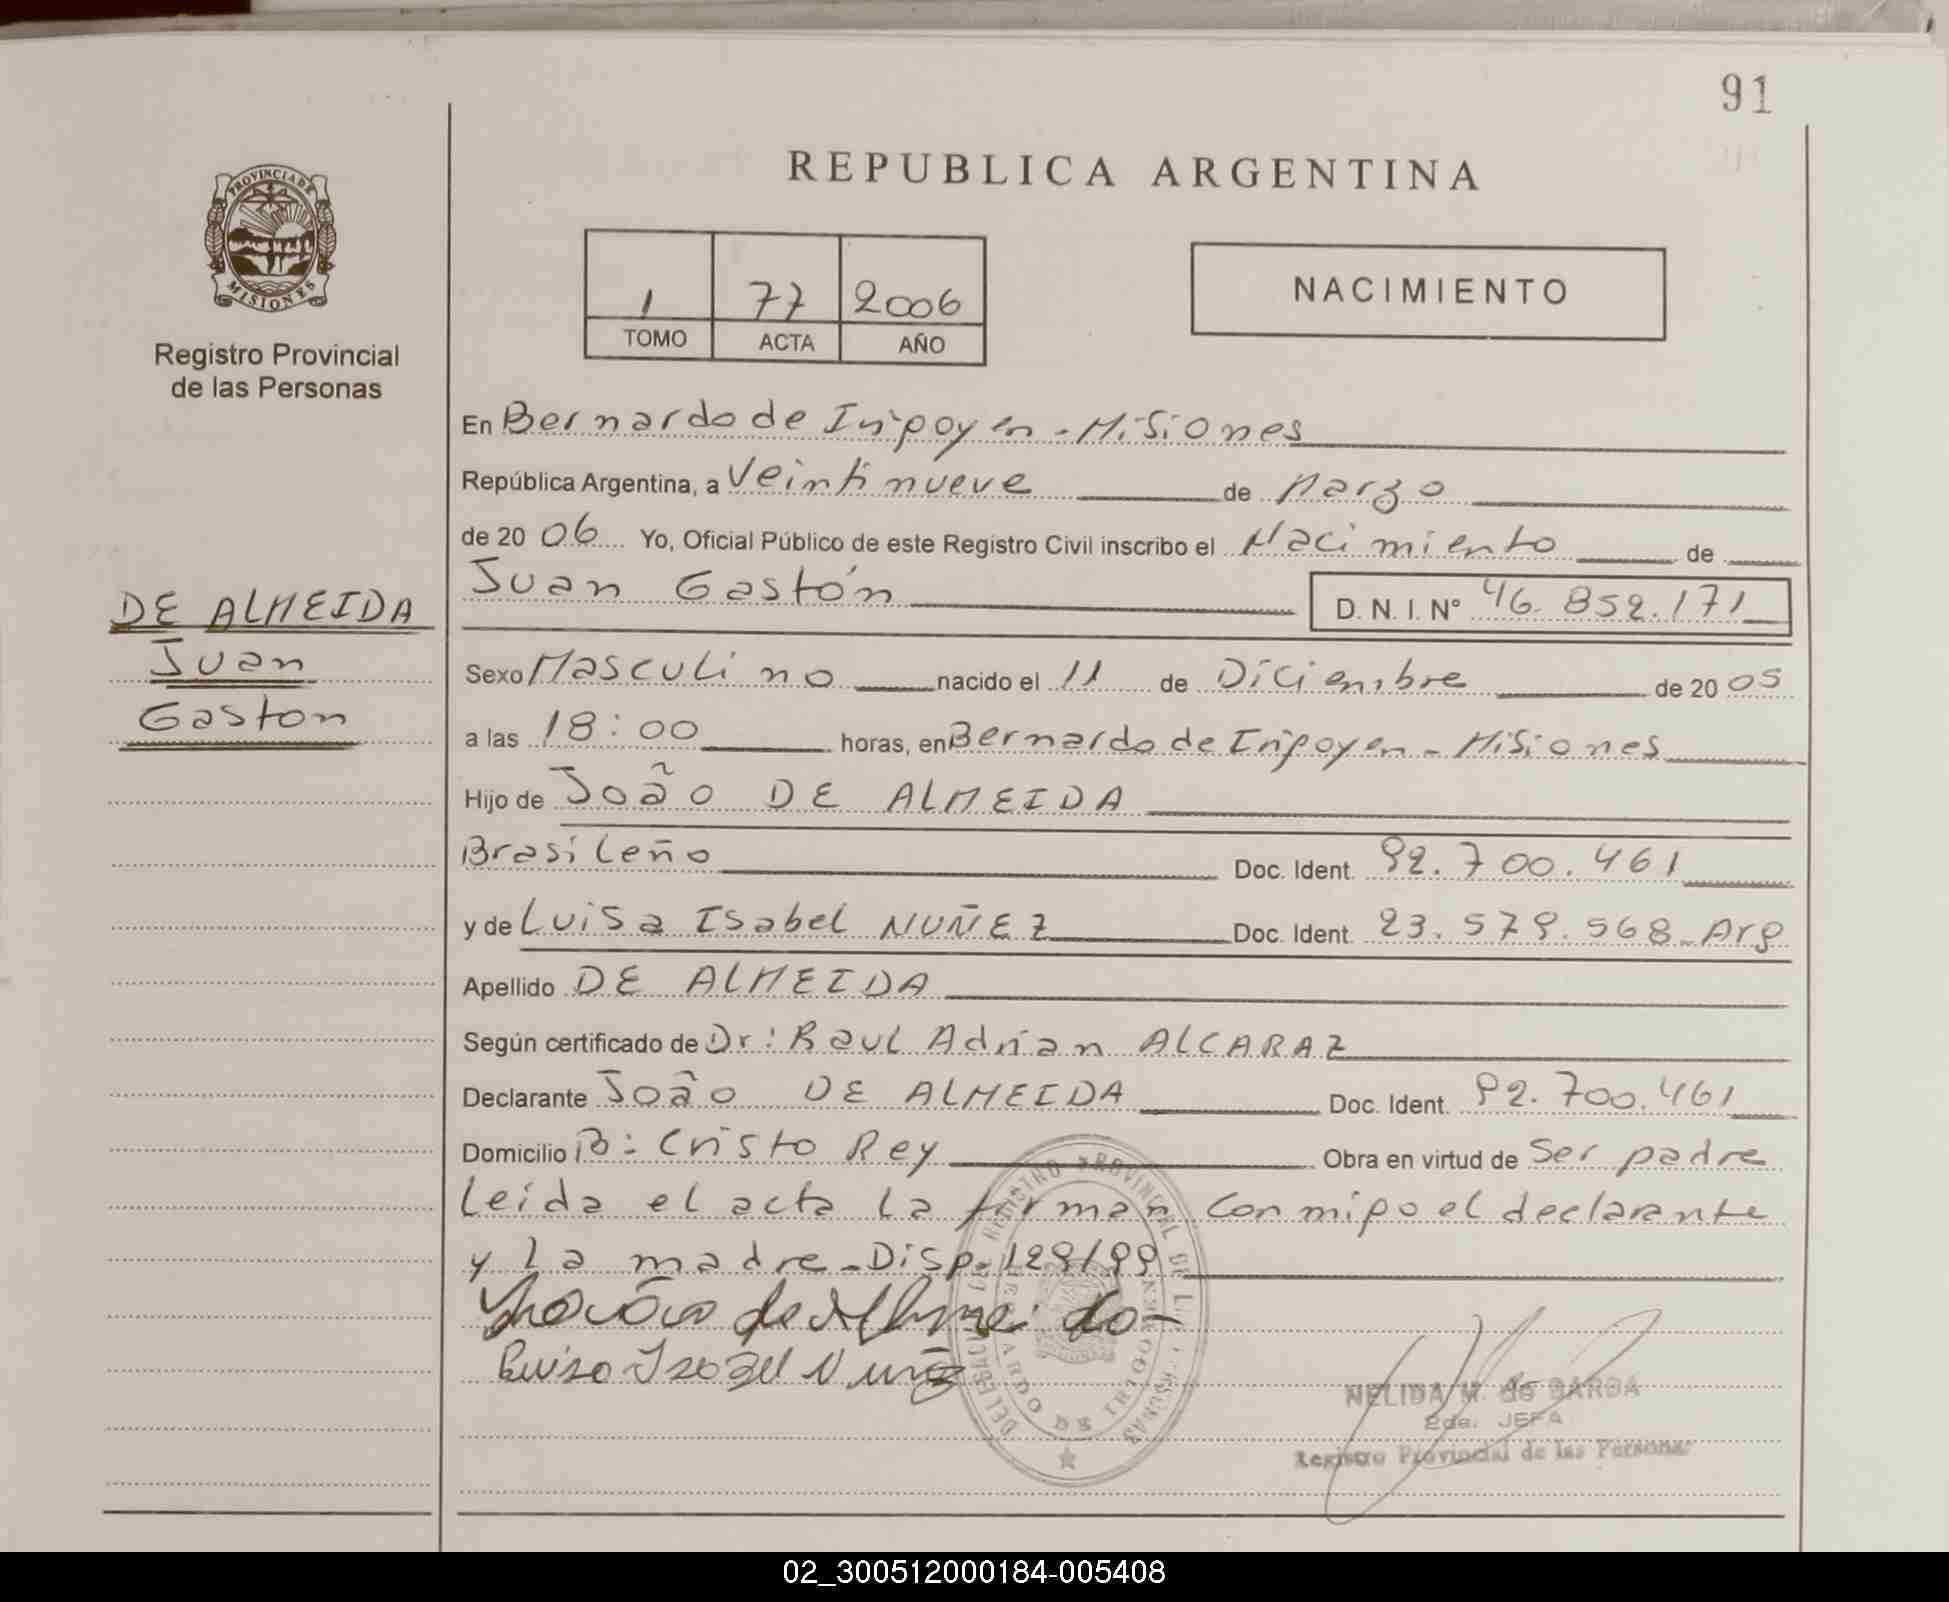 91
REPUBLICA ARGENTINA
PROVINCIA DE
MISIONES
Registro Provincial
de las Personas
1 77 2006
TOMO ACTA AÑO
NACIMIENTO
En Bernardo de Irigoyen - Misiones
República Argentina, a Veintinueve de Marzo
de 20 06 Yo, Oficial Público de este Registro Civil inscribo el Nacimiento de
Juan Gastón D. N. I. Nº 46.852.171
DE ALMEIDA
Juan
Gaston
Sexo Masculino nacido el 11 de Diciembre de 20 05
a las 18:00 horas, en Bernardo de Irigoyen - Misiones
Hijo de João DE ALMEIDA
Brasileño Doc. Ident. 92.700.461
y de Luisa Isabel NUÑEZ Doc. Ident. 23.579.568 - Arg
Apellido DE ALMEIDA
Según certificado de Dr: Raul Adrian ALCARAZ
Declarante João DE ALMEIDA Doc. Ident. 92.700.461
Domicilio Bº: Cristo Rey Obra en virtud de Ser padre
Leida el acta la firman conmigo el declarante
y la madre - Disp. 129/99
de Almeida
Luisa Isabel Nuñez
NELIDA M. de BARBA
2da. JEFA
Registro Provincial de las Personas
02_300512000184-005408